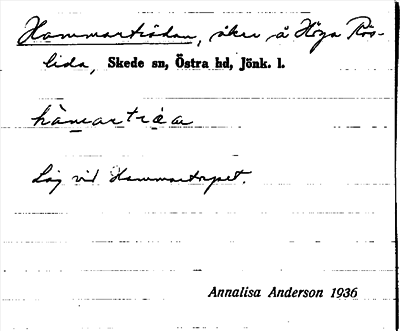 Hammartrådan, åker å Höga Rös-
lida, Skede sn, Östra hd, Jönk. l.
hàmartràa
Låg vid Hammartorpet.
Annalisa Anderson 1936